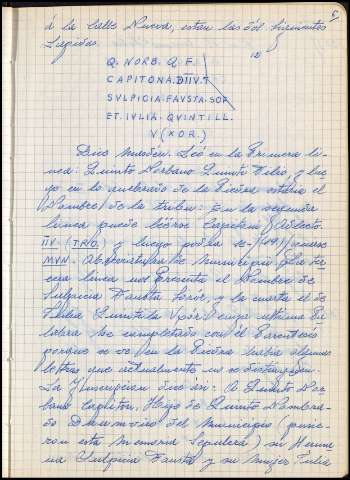 á la Calle Nueva, estan las dos siguientes
Lapidas.
Q. NORB. Q. F.
CAPITONA. DIIV.
SVLPICIA. FAVSTA. SOR
ET. IVLIA. QVINTILL.
V(XOR.)
Dice Masdeu. Leó en la Primera li-
nea: Quinto Norbano Quinto Filio, y lue-
go en lo quebrado de la Piedra estaria el
Nombre de la tribu: En la segunda
linea puede leerse Capiton
IIV. (TRO) y luego podia
MVN. Abreviatura de Municipii. La ter
cera linea nos Presenta el Nombre de
Sulpicia Fausta Soror, y la cuarta el de
Iulia Quintila Uxor cuya ultima Pa
labra he completado con el Parentesis
porque se ve en la Piedra habia algunas
letras que actualmente no se distinguen.
La Ynscripcion dice asi: A Quinto Nor-
bano Capiton, Hijo de Quinto Nombra-
do Duumviro del Municipio (pusie-
ron esta memoria Sepulcral) su Herma-
na Sulpicia Fausta y su Mujer Iulia